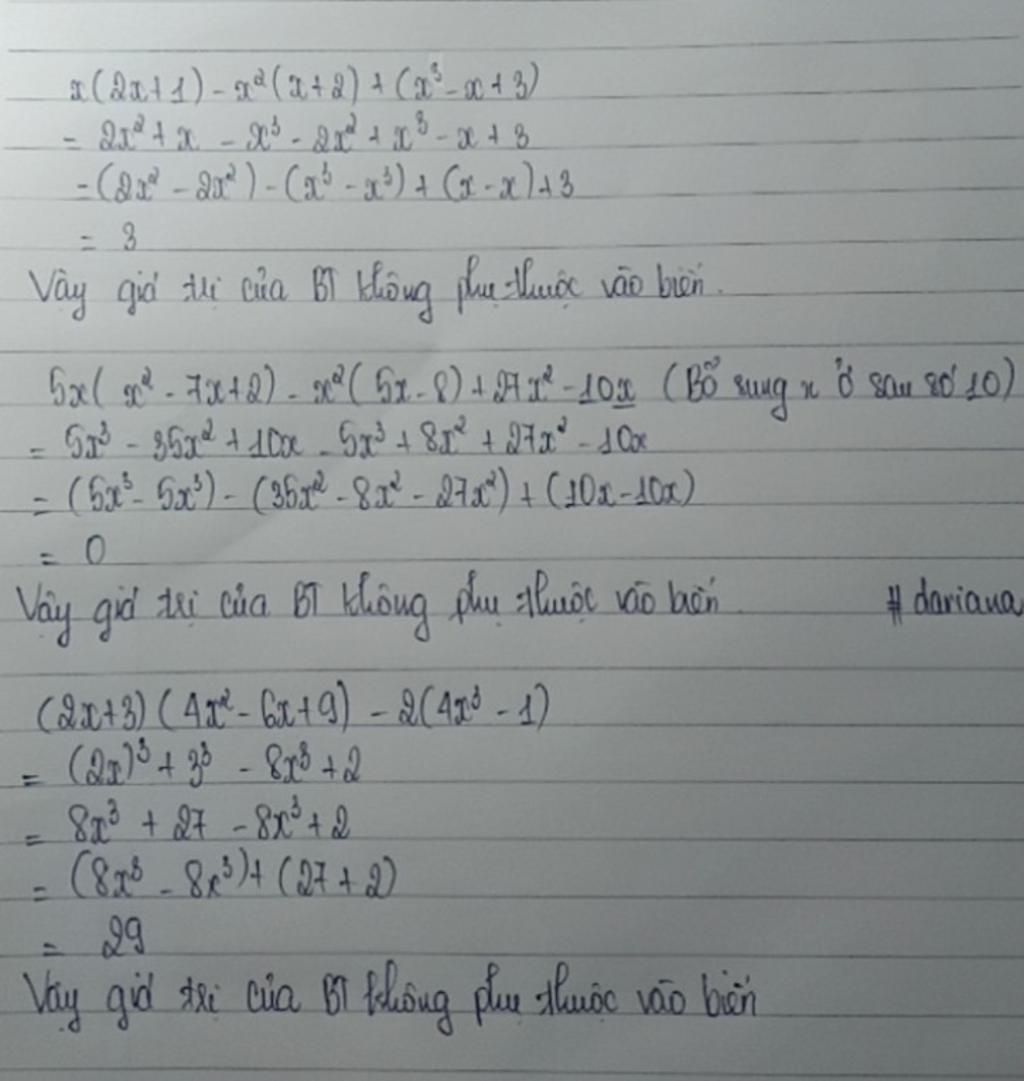 x(2x+1) - x²(x+2) + (x³ - x + 3)
= 2x² + x - x³ - 2x² + x³ - x + 3
= (2x² - 2x²) - (x³ - x³) + (x - x) + 3
= 3
Vậy giá trị của BT không phụ thuộc vào biến.
5x( x² - 7x+2) - x²( 5x - 8) + 27x² - 10x (Bổ sung x ở sau số 10)
= 5x³ - 35x² + 10x - 5x³ + 8x² + 27x² - 10x
= (5x³ - 5x³) - (35x² - 8x² - 27x²) + (10x - 10x)
= 0
Vậy giá trị của BT không phụ thuộc vào biến # dariana
(2x+3) (4x² - 6x + 9) - 2(4x³ - 1)
= (2x)³ + 3³ - 8x³ + 2
= 8x³ + 27 - 8x³ + 2
= (8x³ - 8x³) + (27 + 2)
= 29
Vậy giá trị của BT không phụ thuộc vào biến